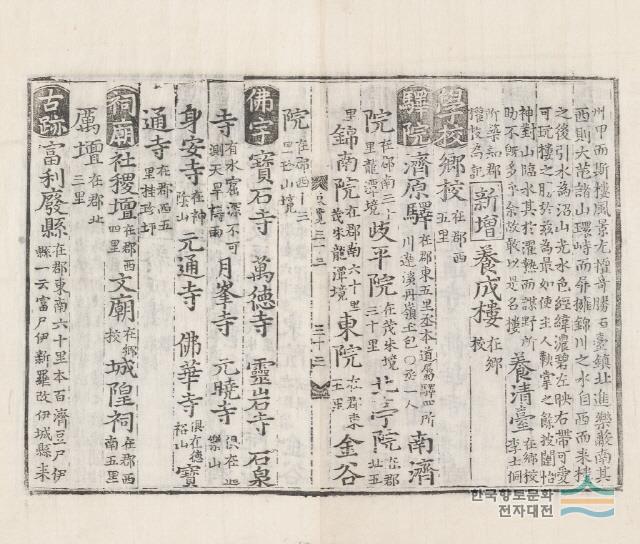 州甲而斯樓風景尤擅奇勝石臺鎮北進樂嚴南其
西則大芚諸山驛峙而屛擁錦川之水自西而來樓
之後引水爲沼山光水色經緯濃碧左映右帶可愛
可玩樓之勝於玆爲最如使主人鞅掌之餘披
神對山臨水其於濯熱而謀野所
助不旣多乎余故敢以是名樓
新增 養成樓 在鄉校 養清臺 在鄉校
學校 鄉校 在郡西五里
驛院 濟原驛 在郡東五里丞本道屬驛四所 川達淡丹嶺土包〇丞一人 南濟
院 在郡南三十里龍潭境 歧平院 在茂朱境三十里 北亭院 在郡北五
里 錦南院 在郡南六十里茂朱龍潭境 東院 在郡東五里 金谷
院 在郡西三十里珍山境
佛宇 寶石寺 萬德寺 靈岩寺 石泉
寺 有水窟深不可測天旱禱雨 月峯寺 元曉寺 俱在進樂山
身安寺 在神陰山 元通寺 佛華寺 俱在德裕山 寶
通寺 在郡西五里
祠廟 社稷壇 在郡西四里 文廟 在鄉校 城隍祠 在郡西南五里
厲壇 在郡北三里
古跡 富利廢縣 在郡東南六十里本百濟豆尸伊縣一云富尸伊新羅改伊城縣来
한국향토문화
전자대전